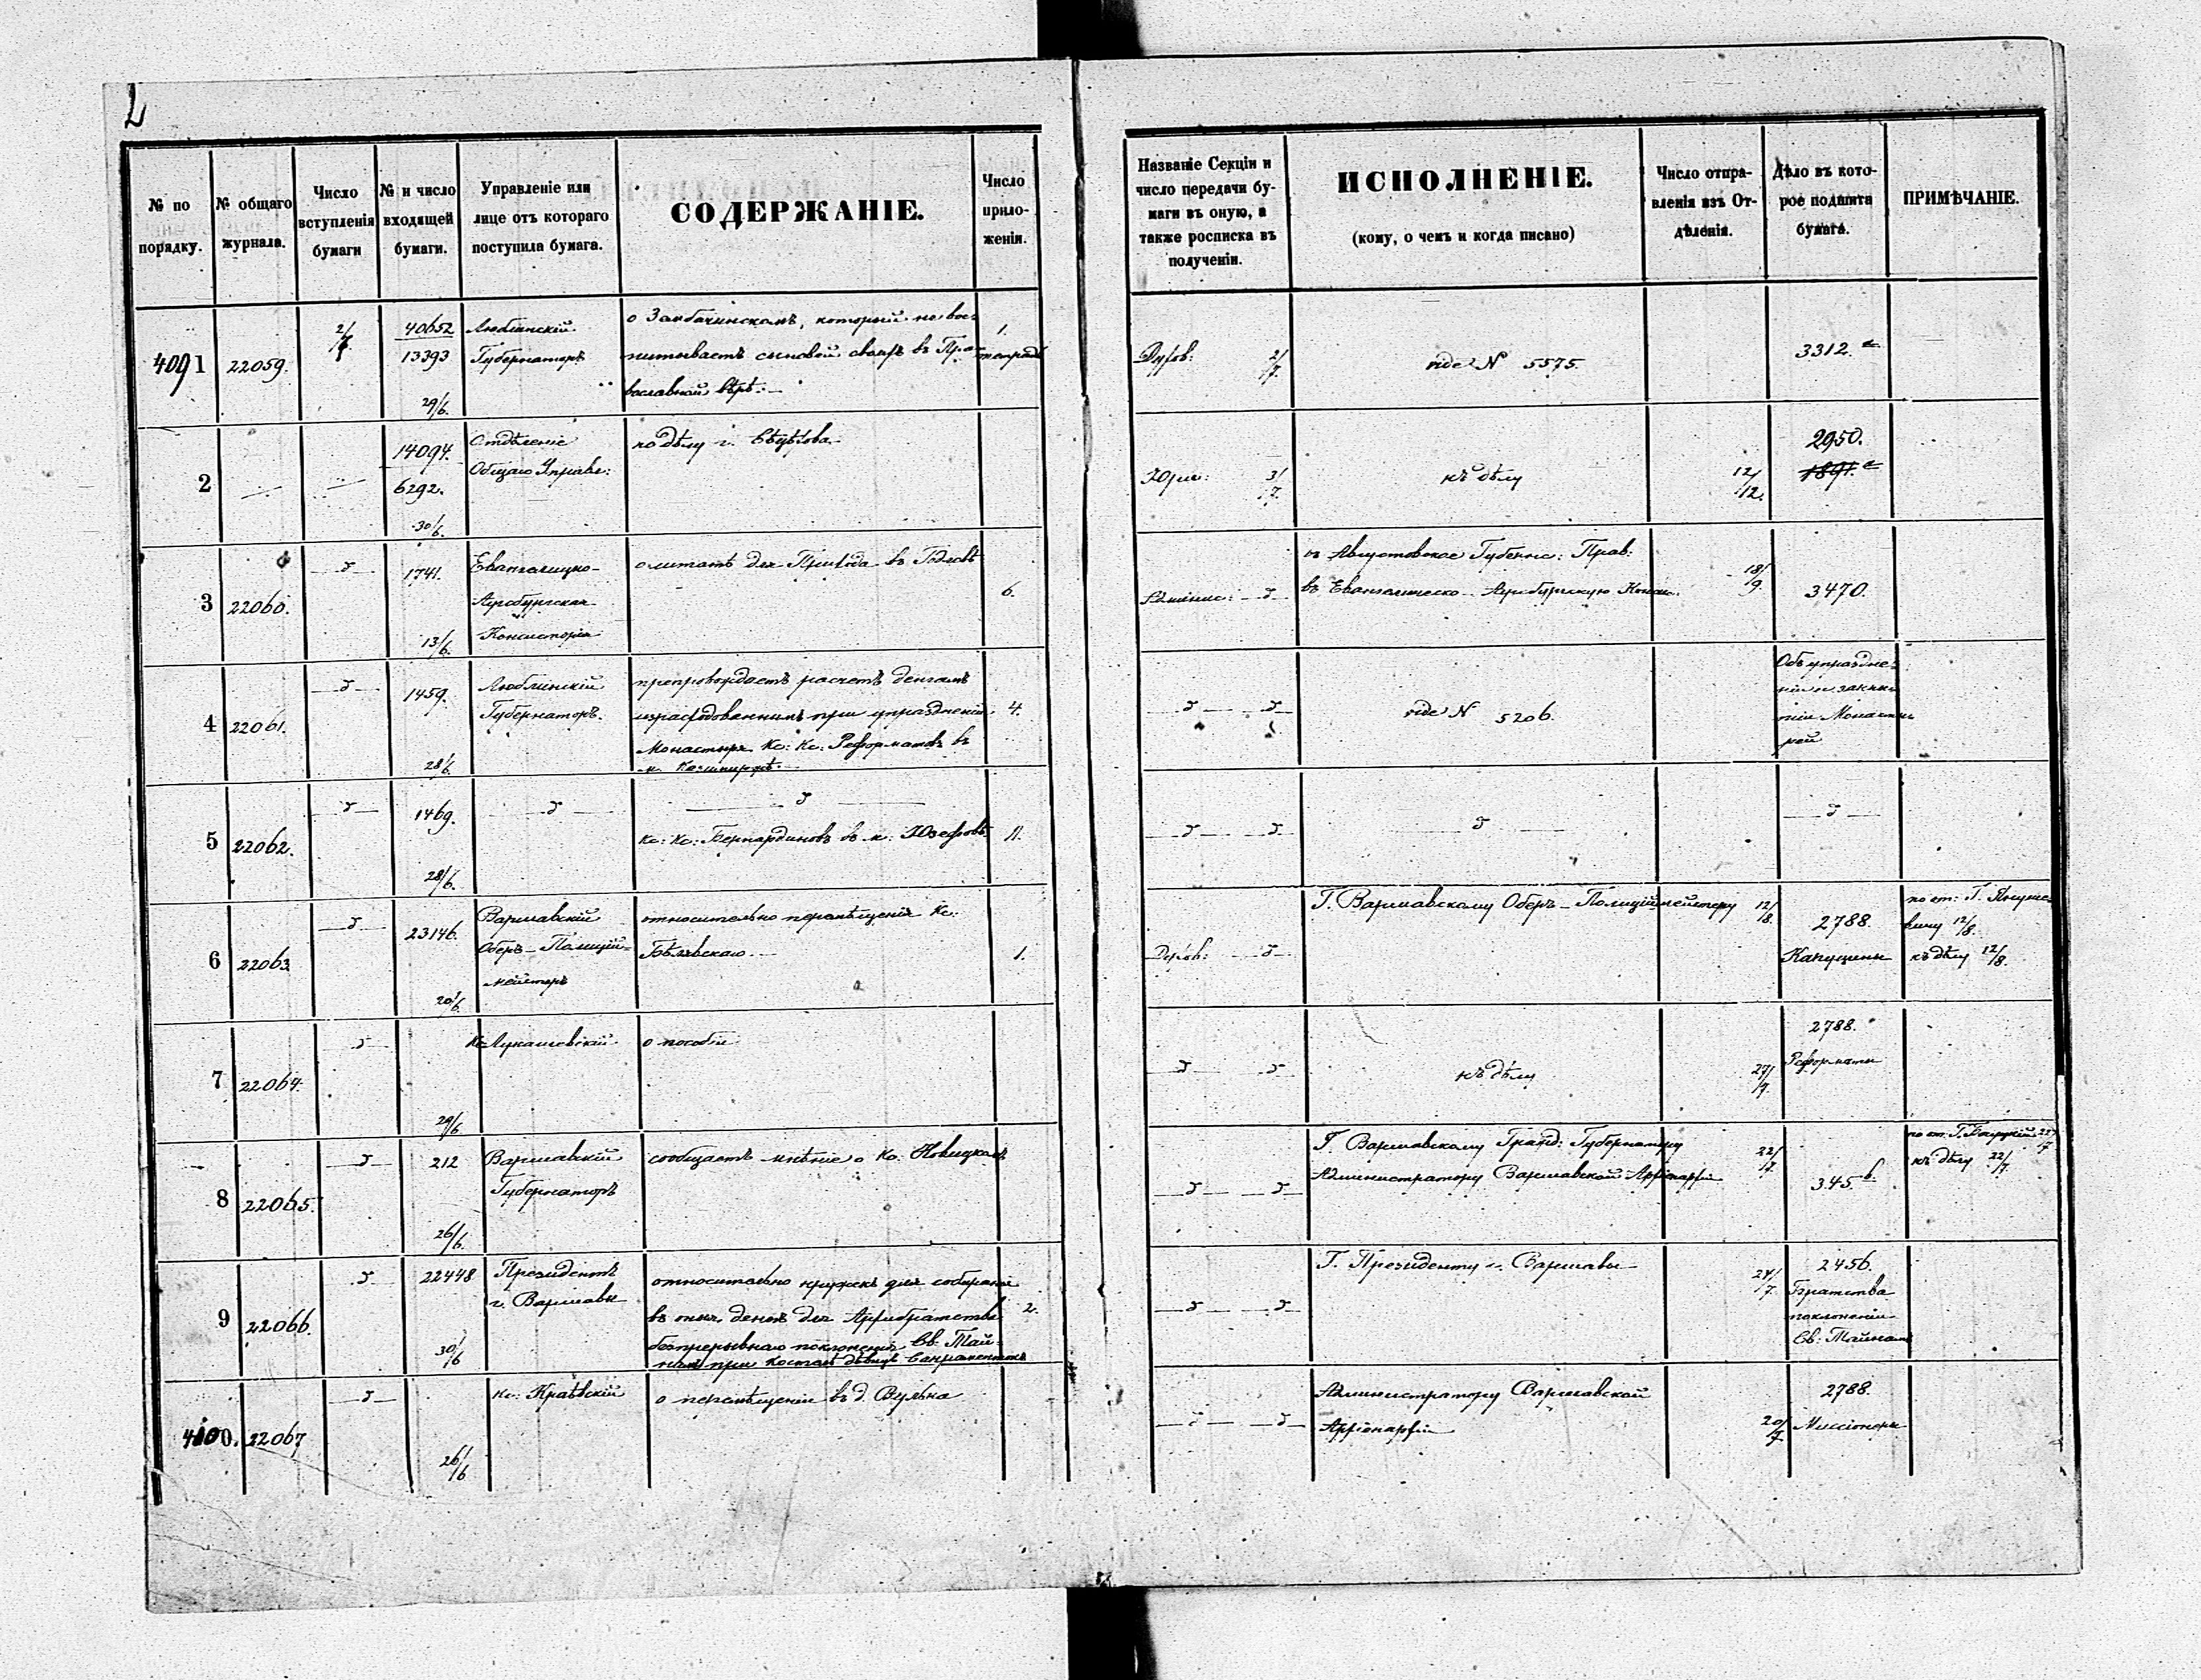 2
№ по порядку.
№ общаго журнала.
Число вступленія бумаги
№ и число входящей бумаги.
Управленіе или лице отъ котораго поступила бумага.
СОДЕРЖАНІЕ.
Число приложеніи.
Названіе Секціи и число передачи бумаги въ оную, а также росписка въ полученіи.
ИСПОЛНЕНІЕ.
(кому, о чемъ и когда писано)
Число отправленія изъ Отдѣленія.
Дѣло въ которое подшита бумага.
ПРИМѢЧАНІЕ.
4091
22059.
2/7.
40652
13393
29/6.
Люблинскій
Губернаторъ
который не вос-
питываетъ сыновей своихъ въ Пра-
вославной вѣрѣ.
1.
тетрадь
Духов:
2/7.
vide N 5575.
3312. а
2
14094.
6292.
30/6.
Отдѣленіе
Общаго Управл:
по дѣлу г.
Юрис:
3/7.
къ дѣлу
12/12.
2950.
1891. а
3
22060.
1741.
13/6.
Евангелицко-
Аугсбургская
Консисторія
о штатѣ для Прихода въ
6.
Админис:
въ Августовское Губернс: Прав:
въ Евангелическо-Аугсбургскую Консис.
18/9.
3470.
4
22061.
1459.
28/6.
Люблинскій
Губернаторъ.
препровождаетъ расчетъ деньгамъ
израсходованнымъ при упраздненіи
Монастыря Кс: Кс: Реформатовъ въ
м.
4.
vide N 5206.
Объ упраздне-
ніи и закры-
тіи Монасты-
рей
5
22062.
1469.
28/6.
Кс: Кс: Бернардиновъ въ м. Юзефовѣ
11.
6
22063.
23146.
20/6.
Варшавскій
Оберъ-Полицій-
мейстеръ
относительно перемѣщенія Кс:
Бѣлявскаго
1.
Духов:
Г. Варшавскому Оберъ-Полиціймейстеру
12/8.
2788.
Капуцины
по от: Г. Януше-
вичу 12/8.
къ дѣлу 12/8.
7
22064.
29/6
Кс. Лукашевскій
о пособіи
къ дѣлу
27/9.
2788.
Реформаты
8
22065.
212
26/6.
Варшавскій
Губернаторъ
сообщаетъ мнѣніе о Кс. Новицкомъ
Г. Варшавскому Гражд: Губернатору
Администратору Варшавской Архіепархіи
22/7.
345. b.
къ дѣлу 22/7.
9
22066.
22448
30/6
Президентъ
г. Варшавы
относительно кружекъ для собиранія
въ оныя денегъ для Архибратства
безпрерывнаго поклоненія Св. Тай-
намъ при Костелѣ дѣвицъ Сакраментокъ
2.
Г. Президенту г. Варшавы
24/7.
2456.
Братства
поклоненія
Св. Тайнамъ
4100.
22067
26/6
Кс: Краѣвскій
о перемѣщеніи въ д. Вулька
Администратору Варшавской
Архіепархіи
20/7
2788.
Миссіонеры